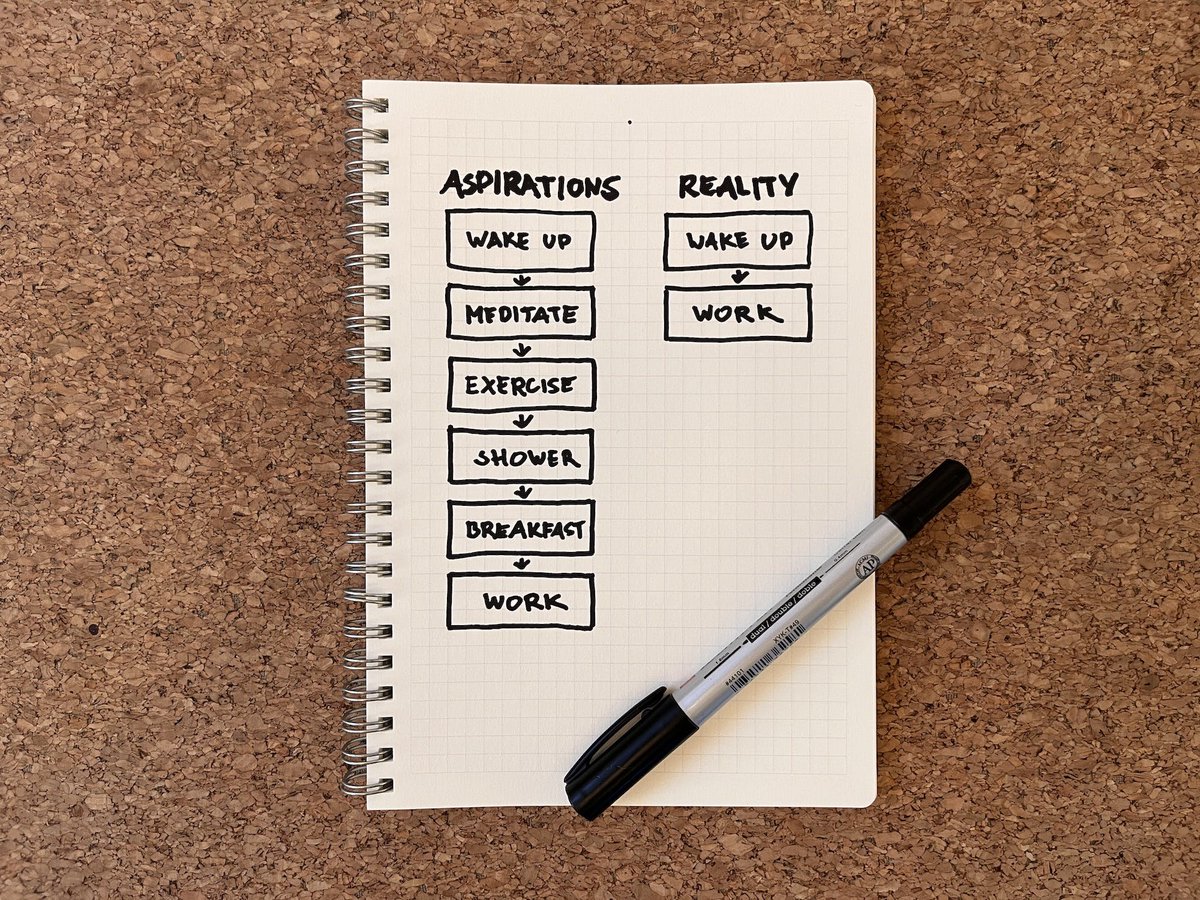 ASPIRATIONS
WAKE UP
MEDITATE
EXERCISE
SHOWER
BREAKFAST
WORK
REALITY
WAKE UP
WORK
dual / double / doble
XYK-T849
#44101
AP